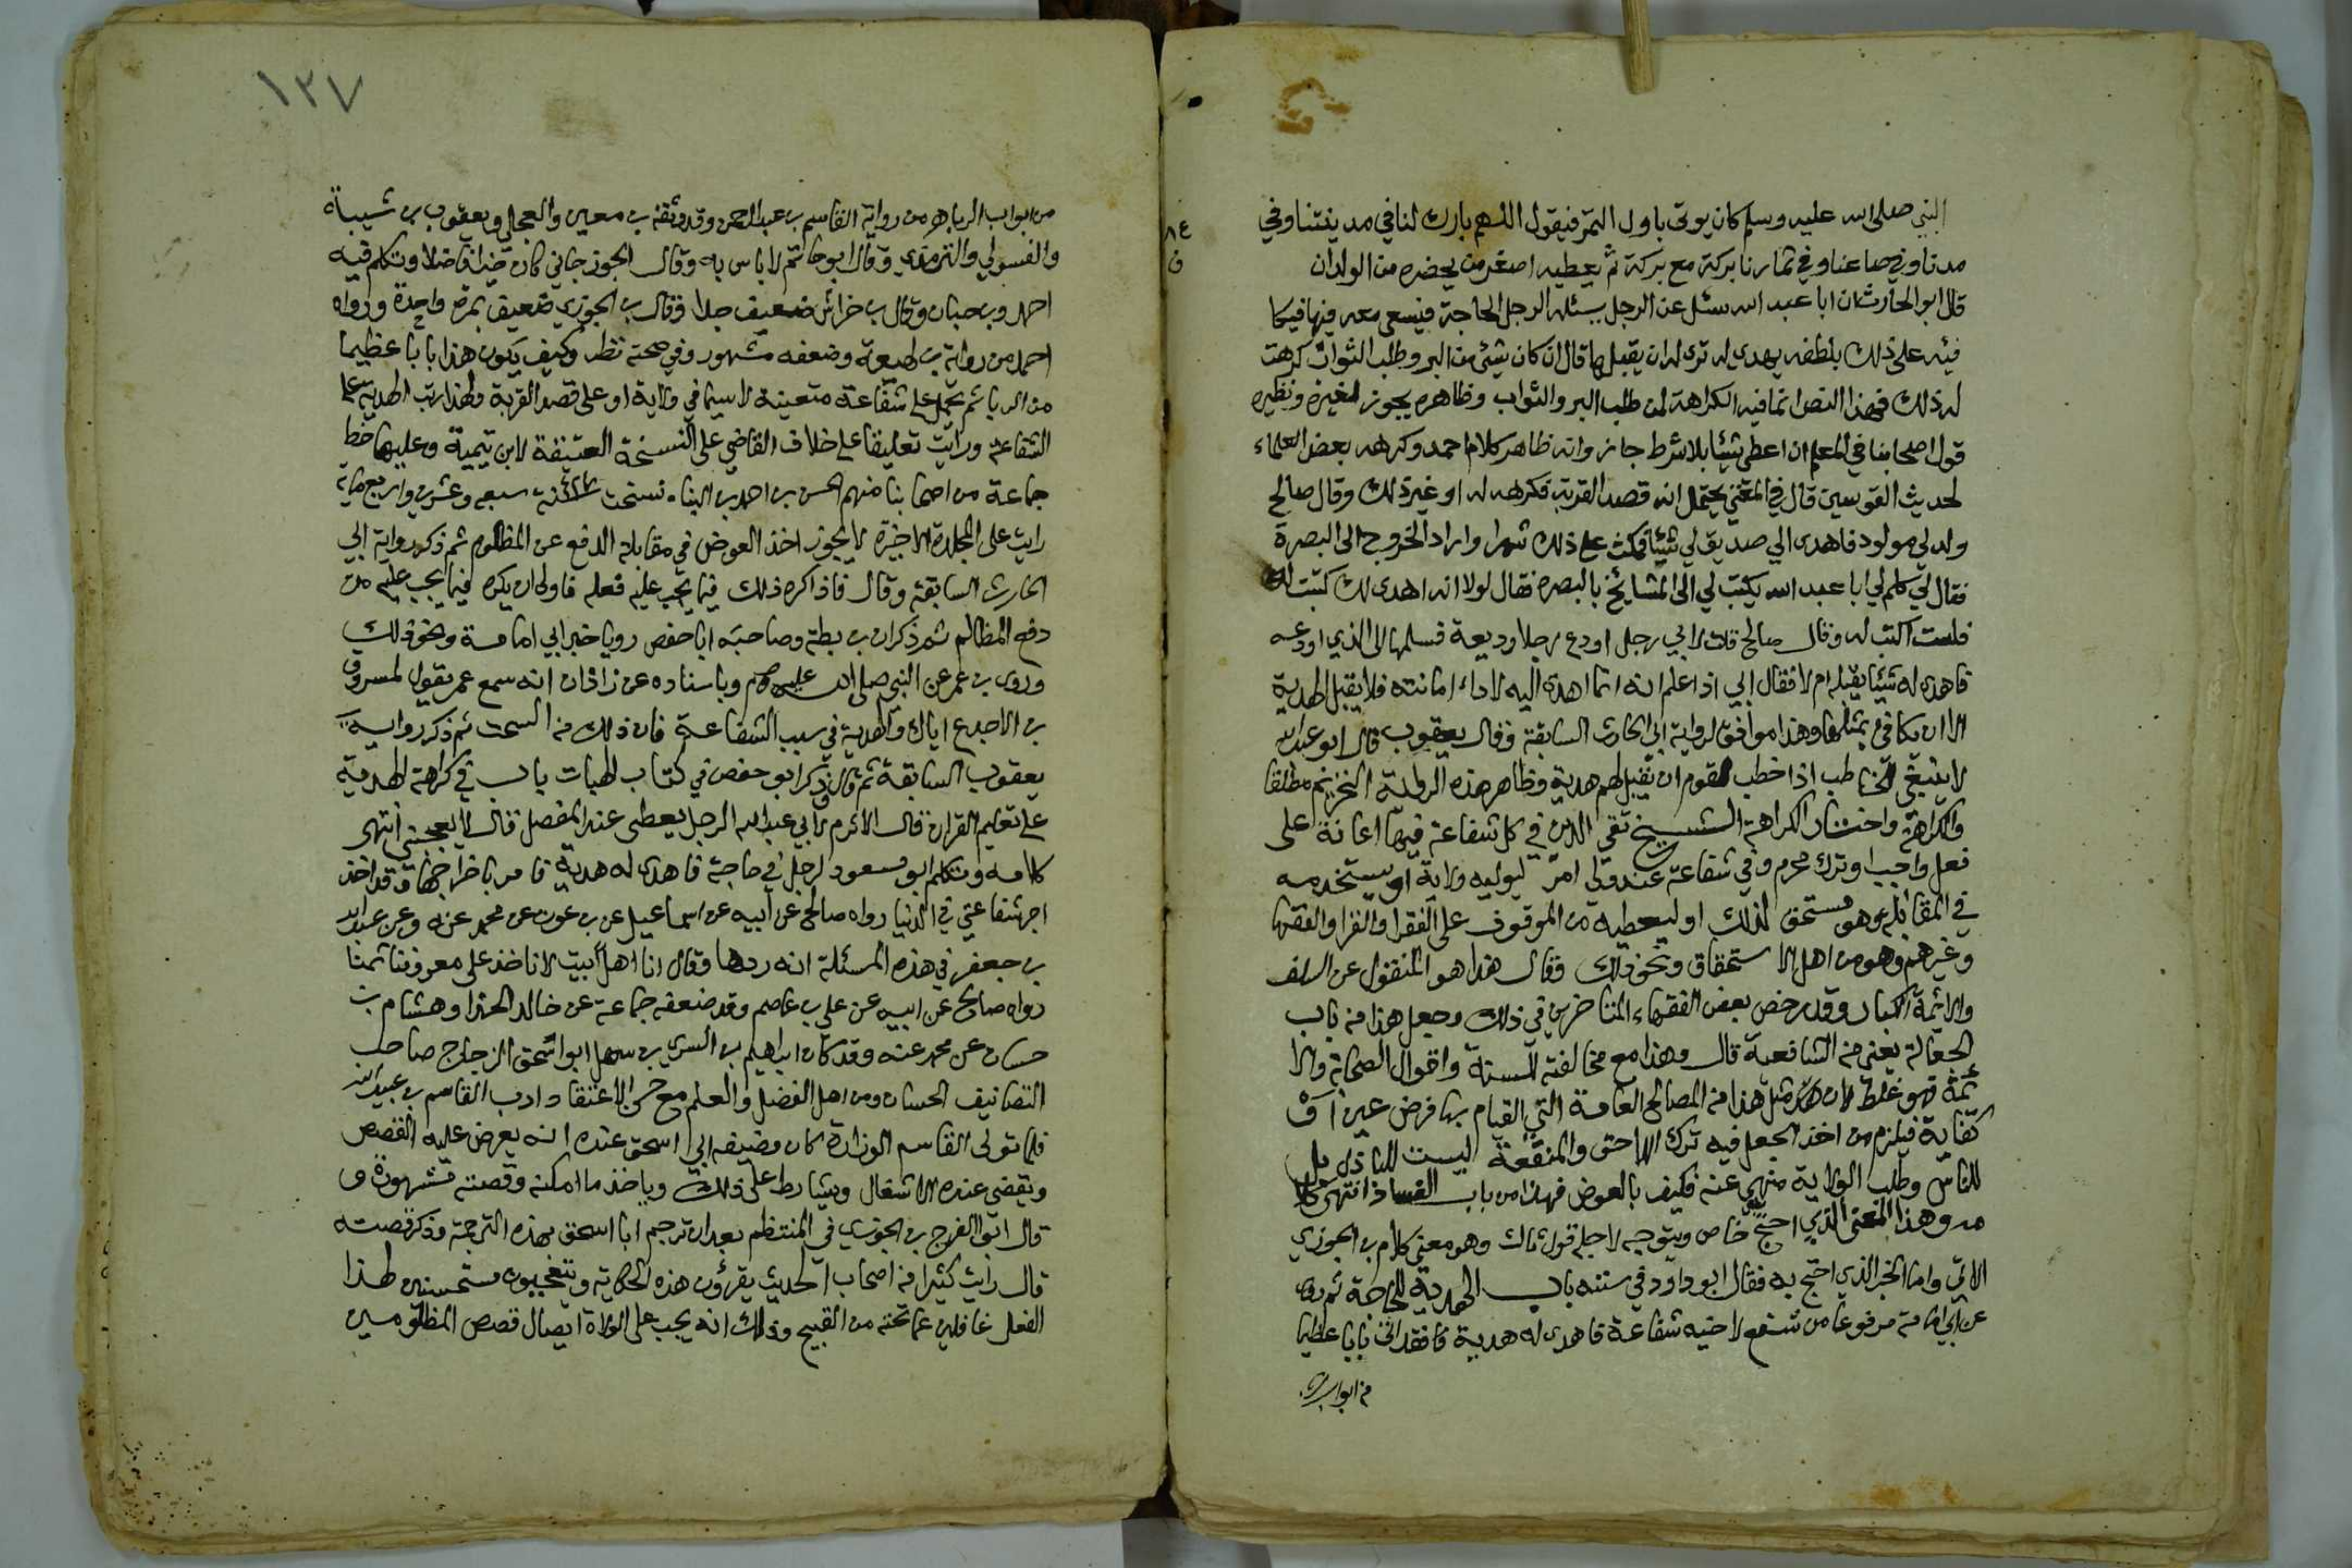 النبي صلى الله عليه وسلم كان يوتى باول التمر فيقول اللهم بارك لنا في مدينتنا وفي
مدنا وفي صاعنا وفي ثمارنا بركة مع بركة ثم يعطيه اصغر من يحضره من الولدان
قال ابو الحارث ان ابا عبد الله سئل عن الرجل يسئله الرجل الحاجة فيسعى معه فيها فيكا
فيه على ذلك بلطفه يهدى له ترى له ان يقبلها قال ان كان شيئ من البر وطلب الثواب كرهت
له ذلك فهذا النص انما فيه الكراهة لمن طلب البر والثواب وظاهره يجوز لغيره ونظيره
قول اصحابنا في المعلم ان اعطى شيئا بلا شرط جاز وانه ظاهر كلام احمد وكرهه بعض العلماء
لحديث القوسين قال في المغني يحتمل انه قصد القربة فكرهه له او غير ذلك وقال صالح
ولد لي مولود فاهدى الي صديق لي شيئا فمكث على ذلك شهرا واراد الخروج الى البصرة
فقال لي كلم لي ابا عبد الله يكتب لي الى المشايخ بالبصره فقال لولا انه اهدى لك كتبت له
فلست اكتب له وقال صالح قلت لابي رجل اودع رجلا وديعة فسلمها الى الذي اودعه
فاهدى له شيئا يقبله ام لا فقال ابي اذا علم انه انما اهدى اليه لاداء امانته فلا يقبل الهدية
الا ان يكافئ بمثلها وهذا موافق لرواية ابي الحارث السابقة وقال يعقوب قال ابو عبد الله
لا ينبغي للخاطب اذا خطب لقوم ان يقبل لهم هدية وظاهر هذه الرواية التحريم مطلقا
والكراهة واختار الكراهة الشيخ تقي الدين في كل شفاعة فيها اعانة على
فعل واجب او ترك محرم وفي شفاعة عند ولي امر ليوليه ولاية او يستخدمه
في المقاتلة وهو مستحق لذلك او ليعطيه من الموقوف على الفقرا والقرا والفقها
وغيرهم وهو من اهل الاستحقاق ونحو ذلك وقال هذا هو المنقول عن السلف
والائمة الكبار وقد رخص بعض الفقهاء المتاخرين في ذلك وجعل هذا من باب
الجعالة يعني من الشافعية قال وهذا مع مخالفته للسنة واقوال الصحابة والا
ئمة فهو غلط لان مثل هذا من المصالح العامة التي القيام بها فرض عين او
كفاية فيلزم من اخذ الجعل فيه ترك الاحق والمنفعة ليست للباذل بل
للناس وطلب الولاية منهي عنه فكيف بالعوض فهذا من باب الفساد انتهى كلا
مه وهذا المعنى الذي احتج خاص ويتوجه لاجله قول ثالث وهو معنى كلام بن الجوزي
الاتي واما الخبر الذي احتج به فقال ابو داود في سننه باب الهدية للحاجة ثم روى
عن ابي امامة مرفوعا من شفع لاخيه شفاعة فاهدى له هدية فقد اتى بابا عظيما
من ابواب
١٢٧
من ابواب الربا هو من رواية القاسم بن عبد الرحمن وقد وثقه بن معين والعجلي ويعقوب بن شيبة
والفسوي والترمذي وقال ابو حاتم لا باس به وقال الجوزجاني كان خيرا فاضلا وتكلم فيه
احمد وبن حبان وقال بن خراش ضعيف جدا وقال بن الجوزي ضعيف بمرة واحدة ورواه
احمد من رواية بن لهيعة وضعفه مشهور وفي صحته نظر وكيف يكون هذا بابا عظيما
من الربا ثم يحمل على شفاعة متعينة لا سيما في ولاية او على قصد القربة ولهذا رتب الهدية على
الشفاعة ورايت تعليقا على خلاف القاضي على النسخة العتيقة لابن تيمية وعليها خط
جماعة من اصحابنا منهم الحسن بن احمد بن البناء نسخت سنة سبع وعشرين واربع مائة
رايت على المجلدة الاخيرة لا يجوز اخذ العوض في مقابلة الدفع عن المظلوم ثم ذكر رواية ابي
الحارث السابقة وقال فاذا كره ذلك فيما يجب عليه فعله فاولى ان يكره فيما يجب عليه من
دفع المظالم ثم ذكر ان بن بطة وصاحبه ابا حفص رويا خبر ابي امامة ونحو ذلك
وروى بن عمر عن النبي صلى الله عليه وسلم وباسناده عن زاذان انه سمع عمر يقول لمسروق
بن الاجدع اياك والهدية في سبب الشفاعة فان ذلك من السحت ثم ذكر رواية
يعقوب السابقة ثم قال وذكر ابو حفص في كتاب الهبات باب في كراهة الهدية
على تعليم القران قال الاثرم لابي عبد الله الرجل يعطى عند المفصل قال لا يعجبني انتهى
كلامه وتكلم ابو مسعود لرجل في حاجة فاهدى له هدية فامر باخراجها وقد اخذ
اجر شفاعتي في الدنيا رواه صالح عن ابيه عن اسماعيل عن بن عون عن محمد عنه وعن عبد الله
بن جعفر في هذه المسئلة انه ردها وقال انا اهل البيت لا ناخذ على معروفنا ثمنا
رواه صالح عن ابيه عن علي بن عاصم وقد ضعفه جماعة عن خالد الحذا وهشام بن
حسان عن محمد عنه وقد كان ابراهيم بن السري بن سهل ابو اسحق الزجاج صاحب
التصانيف الحسان ومن اهل الفضل والعلم مع حسن الاعتقاد ادب القاسم بن عبيد الله
فلما تولى القاسم الوزارة كان وضيفه ابي اسحق عنده انه يعرض عليه القصص
ويقضي عنده الاشغال ويشارط على ذلك وياخذ ما امكنه وقصته مشهورة و
قال ابو الفرج بن الجوزي في المنتظم بعد ان ترجم ابا اسحق بهذه الترجمة وذكر قصته
قال رايت كثيرا من اصحاب الحديث يقرؤن هذه الحكاية ويتعجبون مستحسنين لهذا
الفعل غافلين عما تحته من القبيح وذلك انه يجب على الولاة ايصال قصص المظلومين